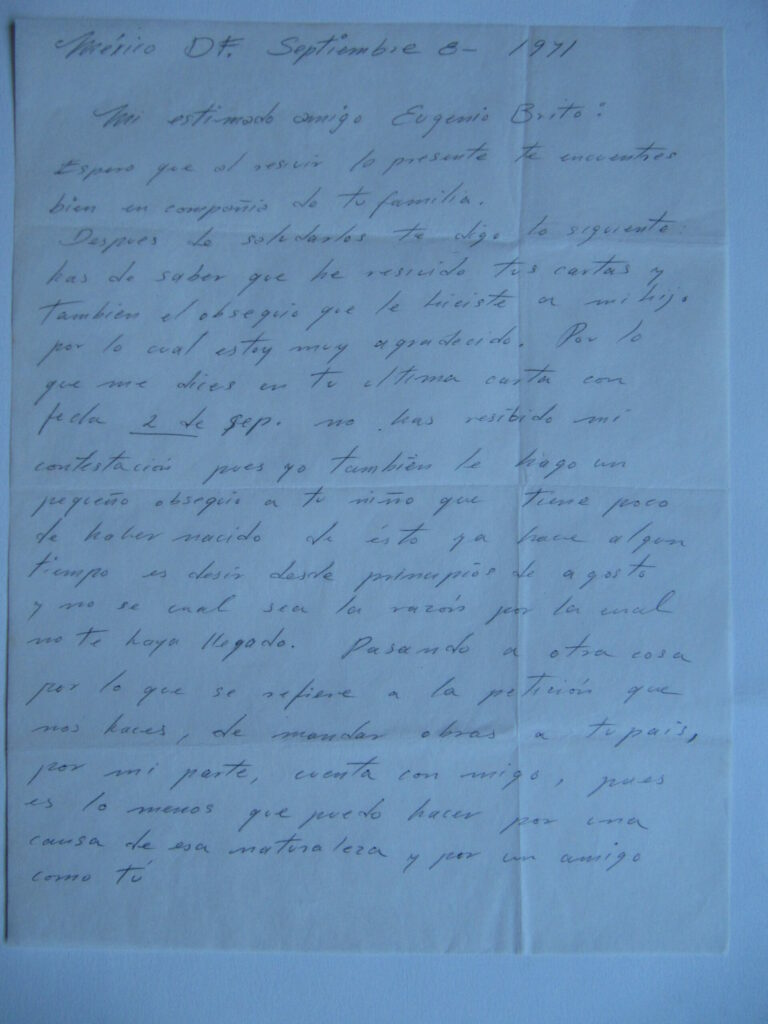 México DF. Septiembre 8- 1971
Mi estimado amigo Eugenio Brito:
Espero que al resivir la presente te encuentres
bien en compañia de tu familia.
Despues de saludarlos te digo lo siguiente:
has de saber que he resivido tus cartas y
tambien el obsequio que le hiciste a mi hijo
por lo cual estoy muy agradecido. Por lo
que me dices en tu ultima carta con
fecha 2 de sep. no has resibido mi
contestación pues yo también le hago un
pequeño obsequio a tu niño que tiene poco
de haber nacido de ésto ya hace algun
tiempo es desir desde principios de agosto
y no se cual sea la razón por la cual
no te haya llegado. Pasando a otra cosa
por lo que se refiere a la petición que
nos haces, de mandar obras a tu pais,
por mi parte, cuenta con migo, pues
es lo menos que puedo hacer por una
causa de esa naturaleza y por un amigo
como tú